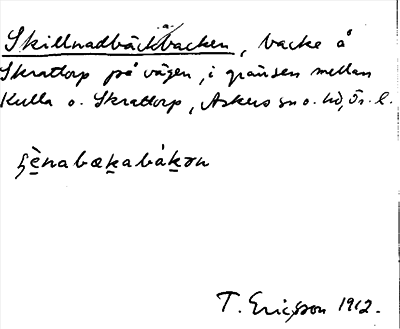 Skillnadbäcksbacken, backe å
Skrattorp på vägen, i gränsen mellan
Kulla o. Skrattorp, Askers sn o. hd, Ör. l.
T. Ericsson 1912.